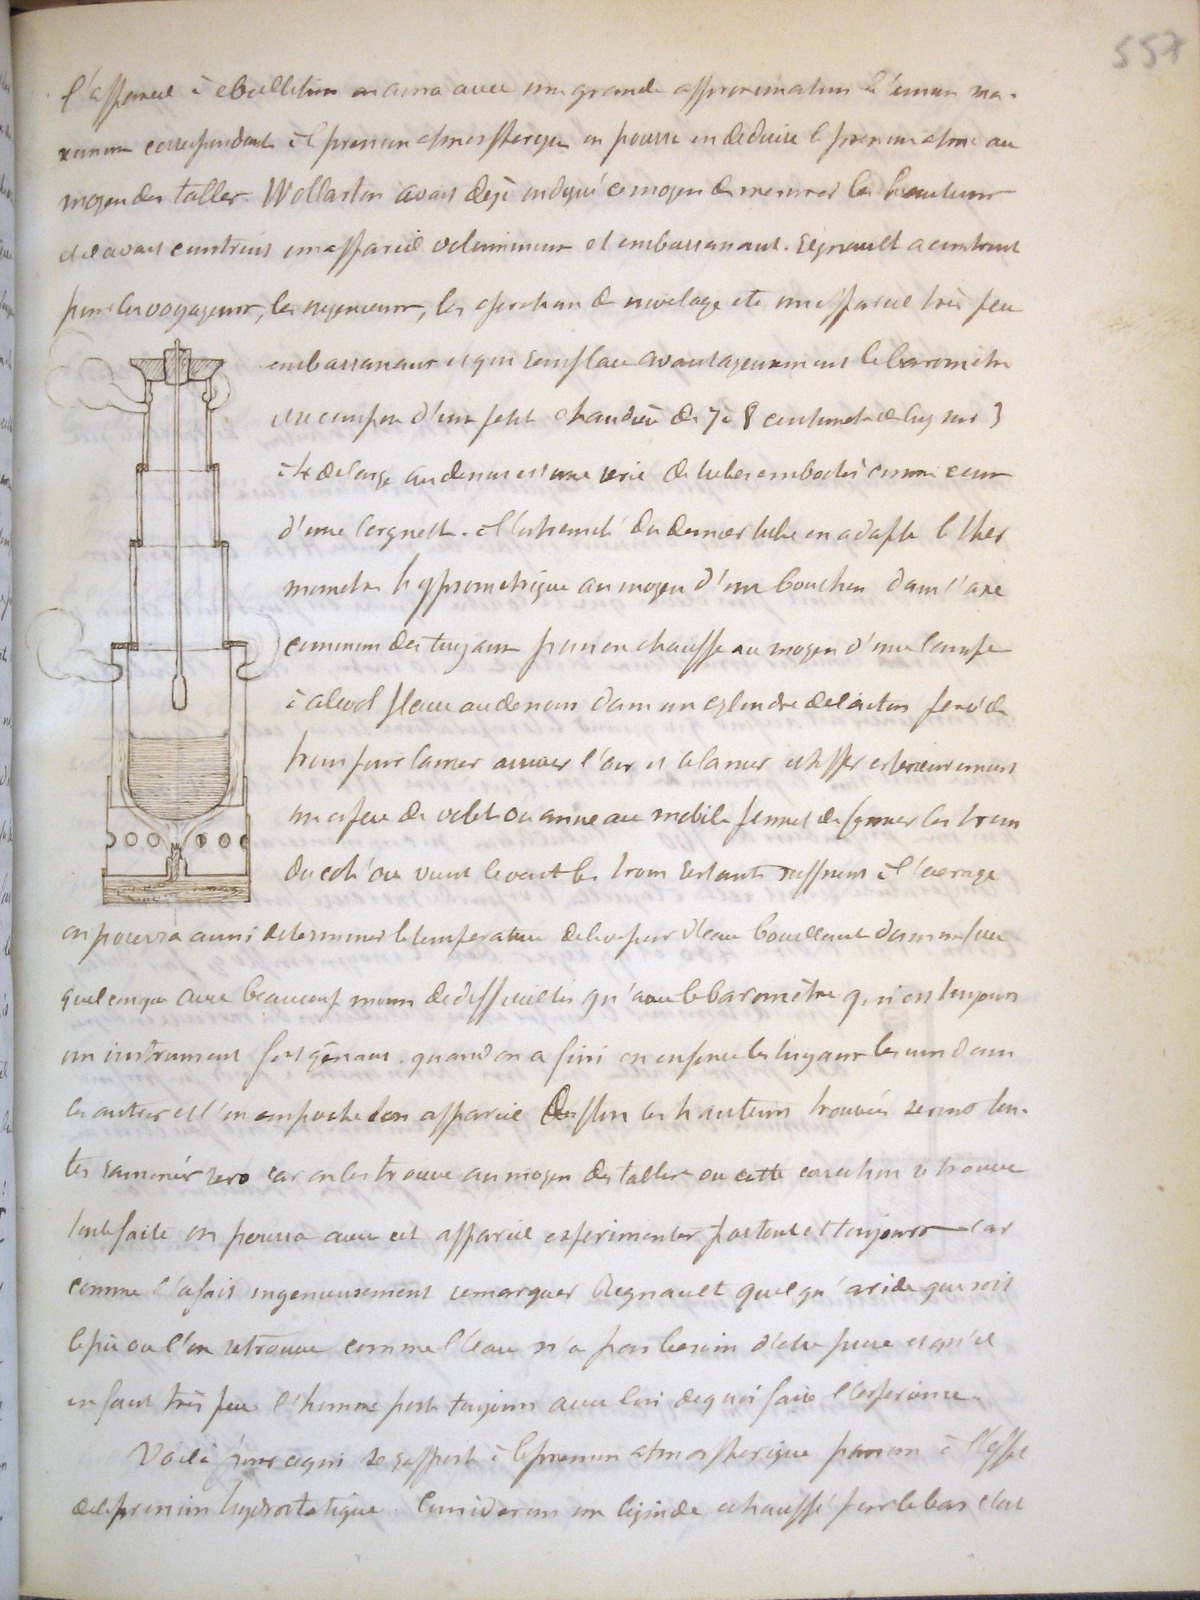 557
l'appareil à ebullition on aura avec une grande approximation la tension ma-
ximum correspondante à la pression atmospherique on pourra en deduire la pression atmo au
moyen des tables. Wollaston avait dejà indiqué ce moyen de mesurer les hauteurs
et il avait construit un appareil volumineux et embarrassant. Regnault a construit
pour les voyageurs, les ingenieurs, les operations de nivelage etc un appareil très peu
embarrassant et qui remplace avantageusement le barometre
il se compose d'une petite chaudière de 7 à 8 centimetres de long sur 3
à 4 de large au dessus est une serie de tubes emboités comme ceux
d'une lorgnette. à l'extremité du dernier tube on adapte le ther
mometre hypsometrique au moyen d'un bouchon dans l'axe
commun des tuyaux puis on chauffe au moyen d'une lampe
à alcool placee au dessous dans un cylindre de laiton percé de
trous pour laisser arriver l'air et à laisser echapper exterieurement
une espece de volet ou anneau mobile permet de fermer les trous
du coté où vient le vent les trous restants suffisent à l'aerage
on pourra aussi determiner la temperature de la vapeur d'eau bouillante dans un lieu
quelconque avec beaucoup moins de difficultés qu'avec le baromètre qui est toujours
un instrument fort gênant. quand on a fini on enfonce les tuyaux les uns dans
les autres et l'on empoche son appareil De plus les hauteurs trouvées seront tou-
tes ramenées zero car on les trouve au moyen des tables ou cette correction se trouve
toute faite on pourra avec cet appareil experimenter partout et toujours car
comme l'a fait ingenieusement remarquer Regnault quelqu'aride que soit
le pic ou l'on se trouve comme l'eau n'a pas besoin d'etre pure et qu'il
en faut très peu l'homme porte toujours avec lui de quoi faire l'experience.
Voilà pour ce qui se rapporte à la pression atmospherique passons à l'effet
de la pression hydrostatique Considerons un liquide echauffé par le bas c'est